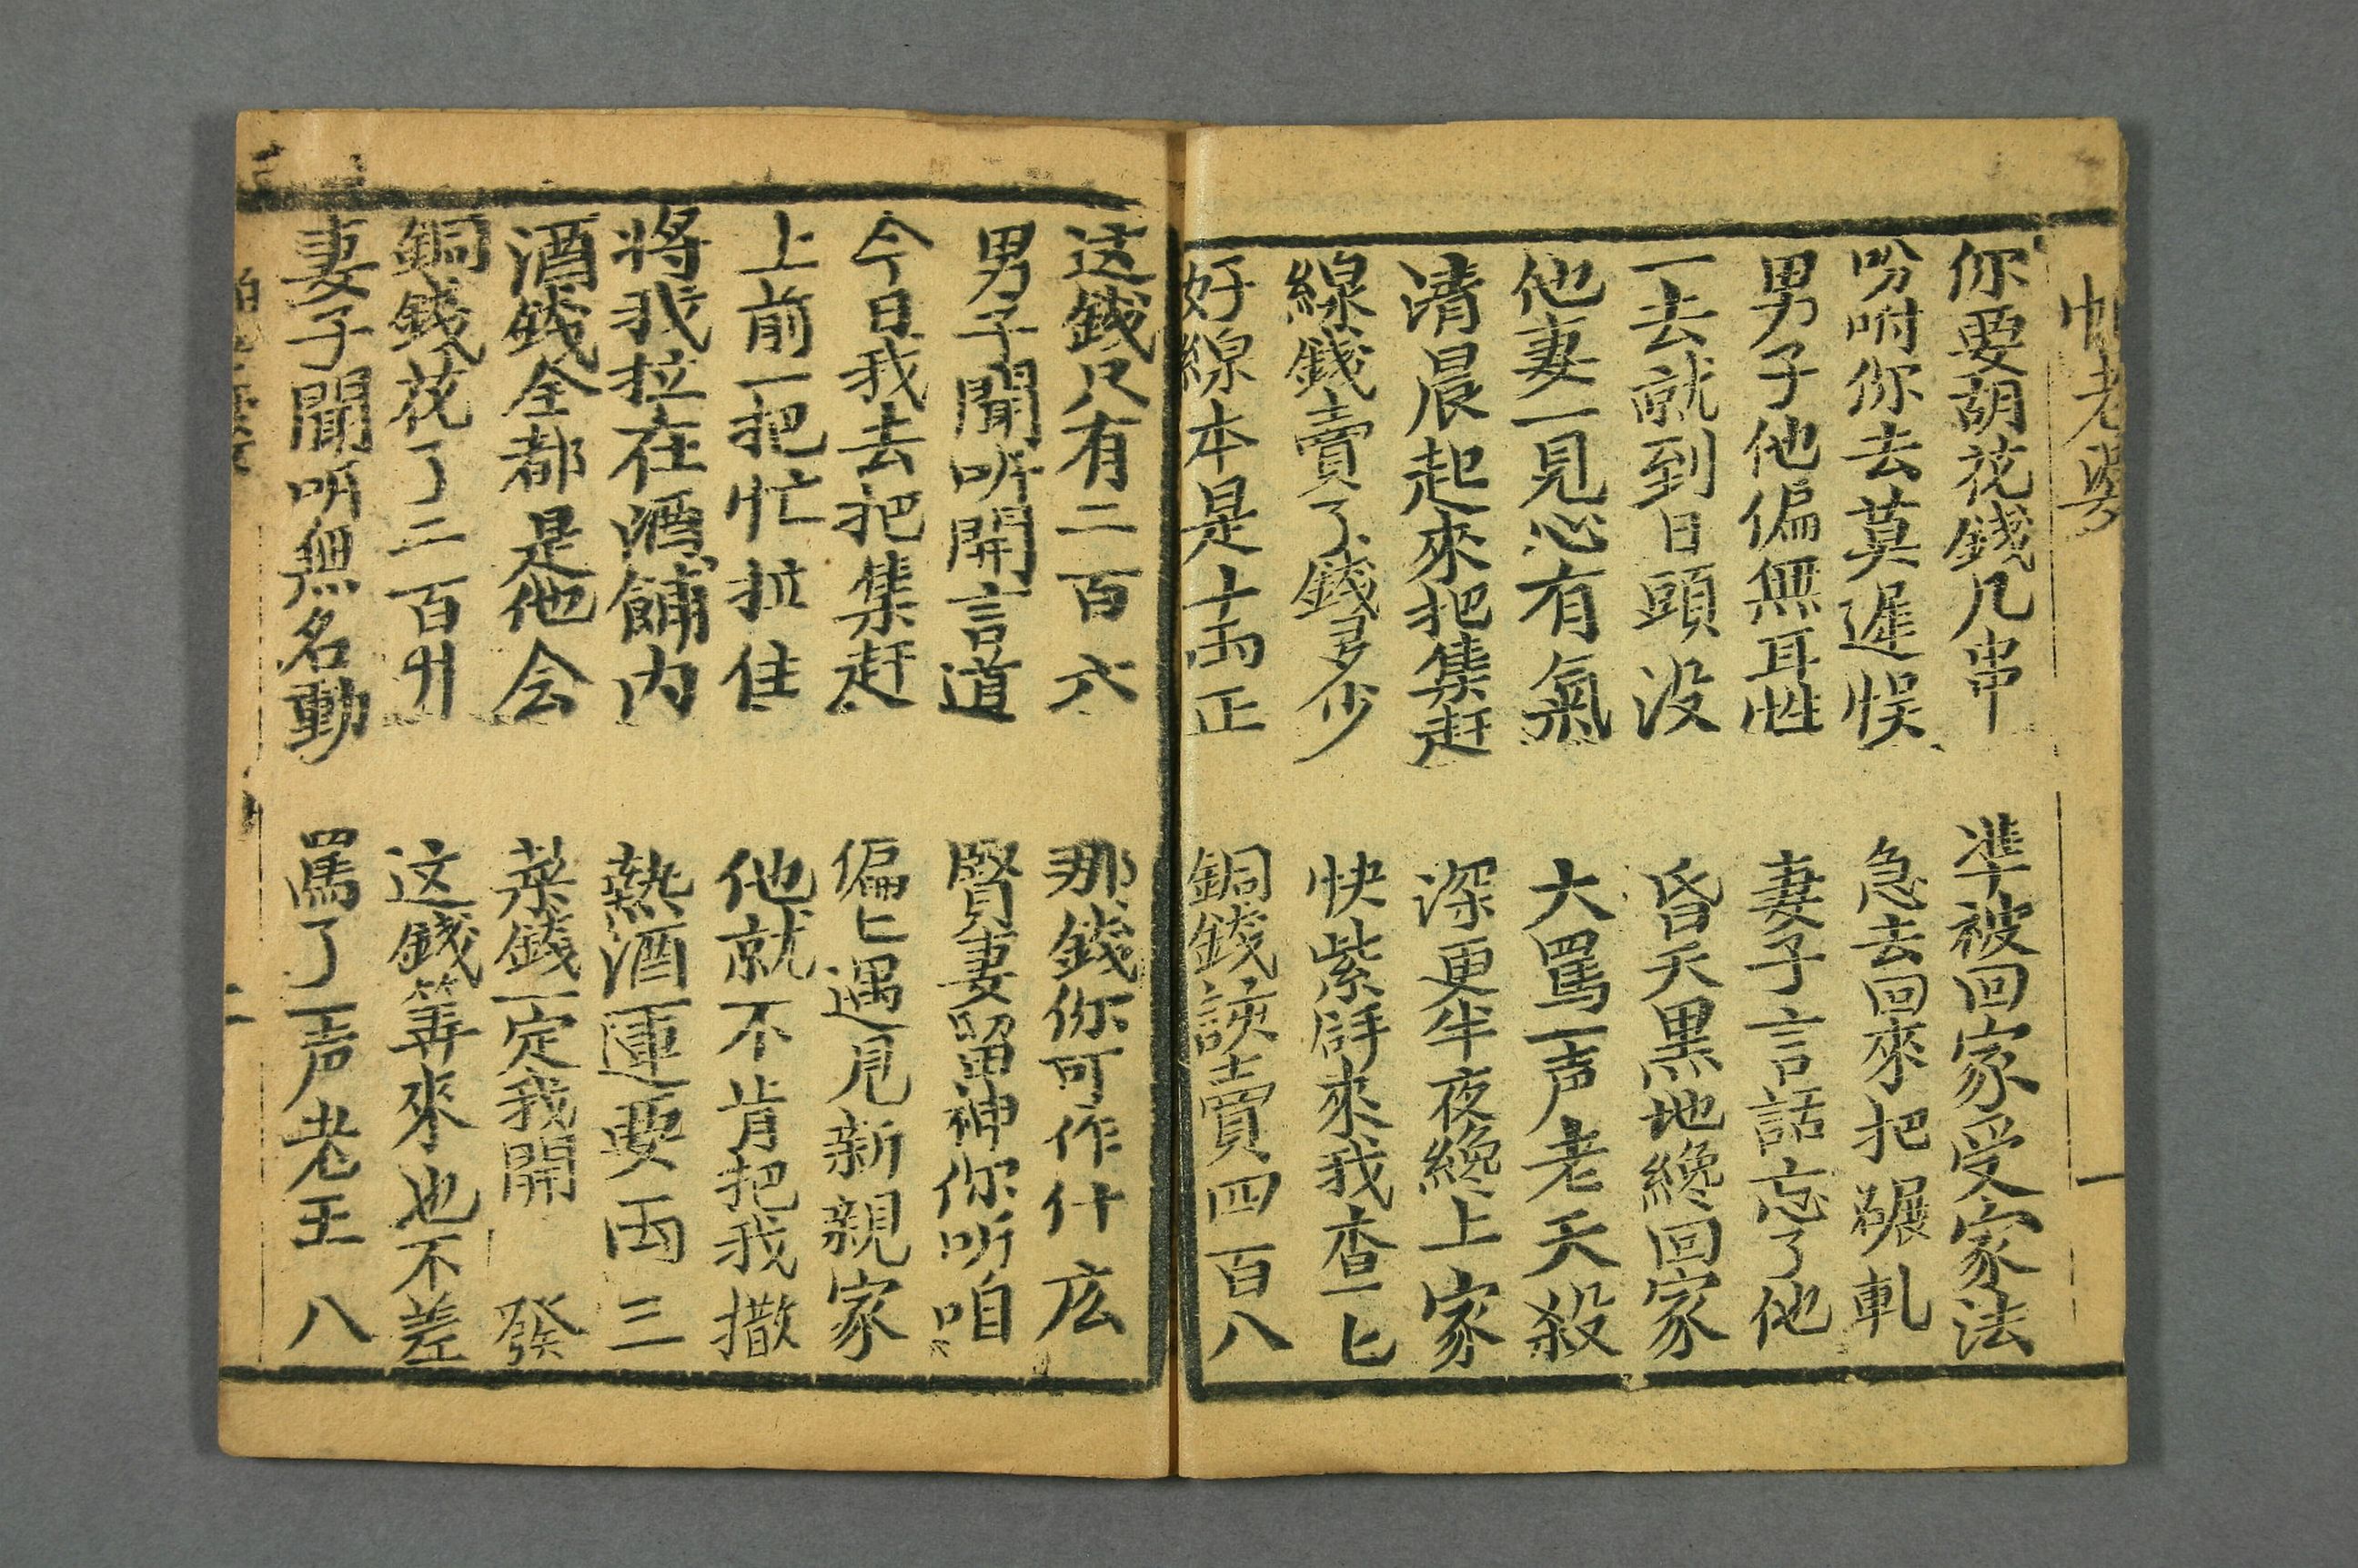 怕老婆
一
你要胡花錢几串 準被回家受家法
吩咐你去莫遲悮 急去回來把碾軋
男子他偏無耳性 妻子言話忘了他
一去就到日頭没 昏天黒地纔回家
他妻一見心有氣 大罵一声老天殺
清晨起來把集赶 深更半夜纔上家
線錢賣了錢多少 快紫辟來我查匕
好線本是十両正 銅錢該賣四百八
这錢只有二百六 那錢你可作什庅
男子聞听開言道 賢妻留神你听咱
今日我去把集赶 偏匕遇見新親家
上前一把忙拉住 他就不肯把我撒
將我拉在酒餔内 熱酒連要両三
酒錢全都是他会 菜錢一定我開發
銅錢花了二百廾 这錢筭來也不差
妻子聞听無名動 罵了一声老王八
二